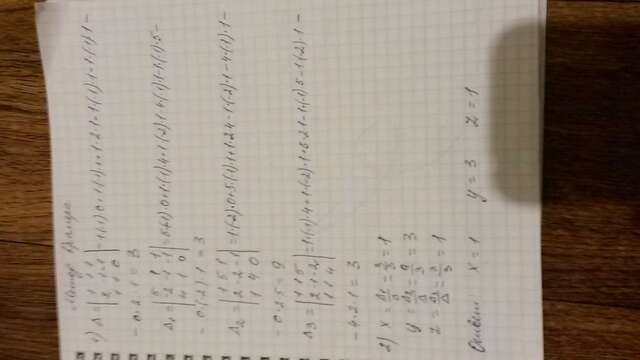 Метод Крамера
1) Δ = |1 1 1; 2 -1 -1; 1 1 0| = 1·(-1)·0+1·(-1)·1+1·2·1-1·(-1)·1-1·(-1)·1-
- 0·2·1 = 3
Δ₁ = |5 1 1; -2 -1 -1; 4 1 0| = 5·(-1)·0+1·(-1)·4+1·(-2)·1-4·(-1)·1-1·(-1)·5-
- 0·(-2)·1 = 3
Δ₂ = |1 5 1; 2 -2 -1; 1 4 0| = 1·(-2)·0+5·(-1)·1+1·2·4-1·(-2)·1-4·(-1)·1-
- 0·2·5 = 9
Δ₃ = |1 1 5; 2 -1 -2; 1 1 4| = 1·(-1)·4+1·(-2)·1+5·2·1-1·(-1)·5-1·(-2)·1-
- 4·2·1 = 3
2) x = Δ₁/Δ = 3/3 = 1
y = Δ₂/Δ = 9/3 = 3
z = Δ₃/Δ = 3/3 = 1
Ответ: x = 1 y = 3 z = 1